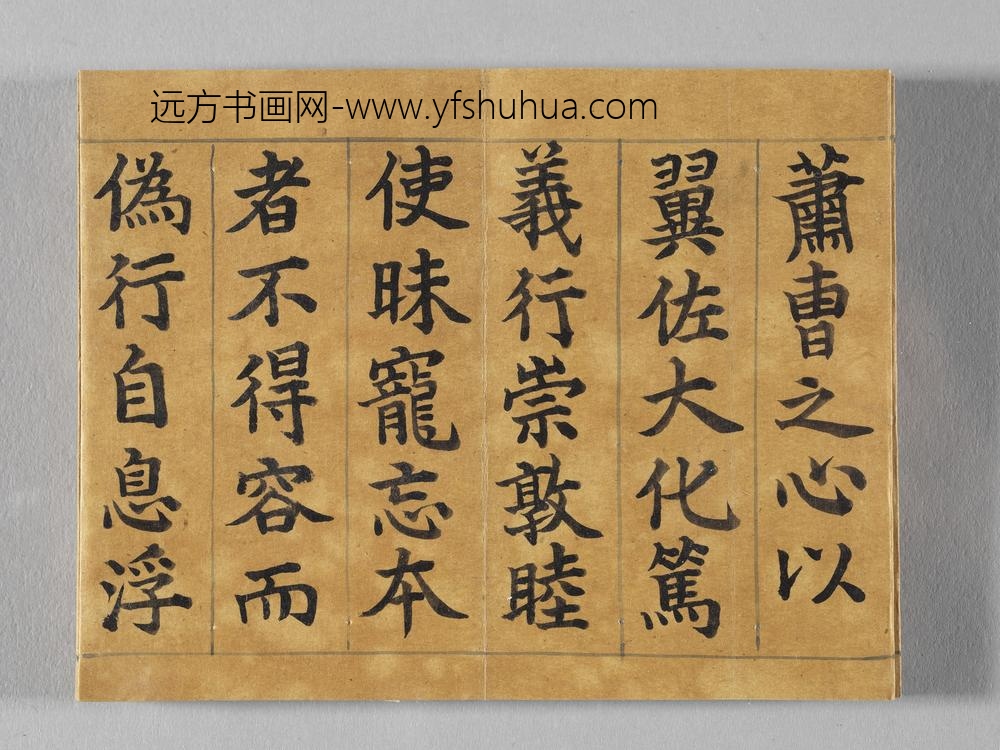 远方书画网-www.yfshuhua.com
蕭曺之心以
翼佐大化篤
義行崇敦睦
使昧寵忘本
者不得容而
偽行自息浮